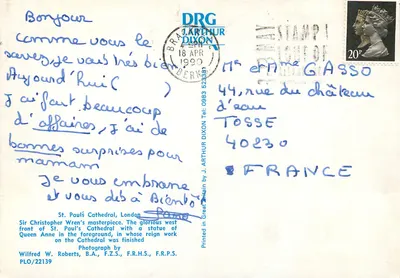 Bonjour
comme vous le
savez je vais très bien
Aujourd'hui ( )
J'ai fait beaucoup
d'affaires, j'ai de
bonnes surprises pour
mamam
Je vous embrasse
et vous dis à Bientôt
St. Paul's Cathedral, London
Sir Christopher Wren's masterpiece. The glorious west
front of St. Paul's Cathedral with a statue of
Queen Anne in the foreground, in whose reign work
on the Cathedral was finished
Photograph by
Wilfred W. Roberts, B.A., F.Z.S., F.R.H.S., F.R.P.S.
PLO/22139
DRG
J. ARTHUR
DIXON
Printed in Great Britain by J. ARTHUR DIXON Tel: 0983 523381
18 APR
1990
BERKS
STAMP
20P
Mr et Mme GASSO
44, rue du château
d'eau
TOSSE
40230
FRANCE